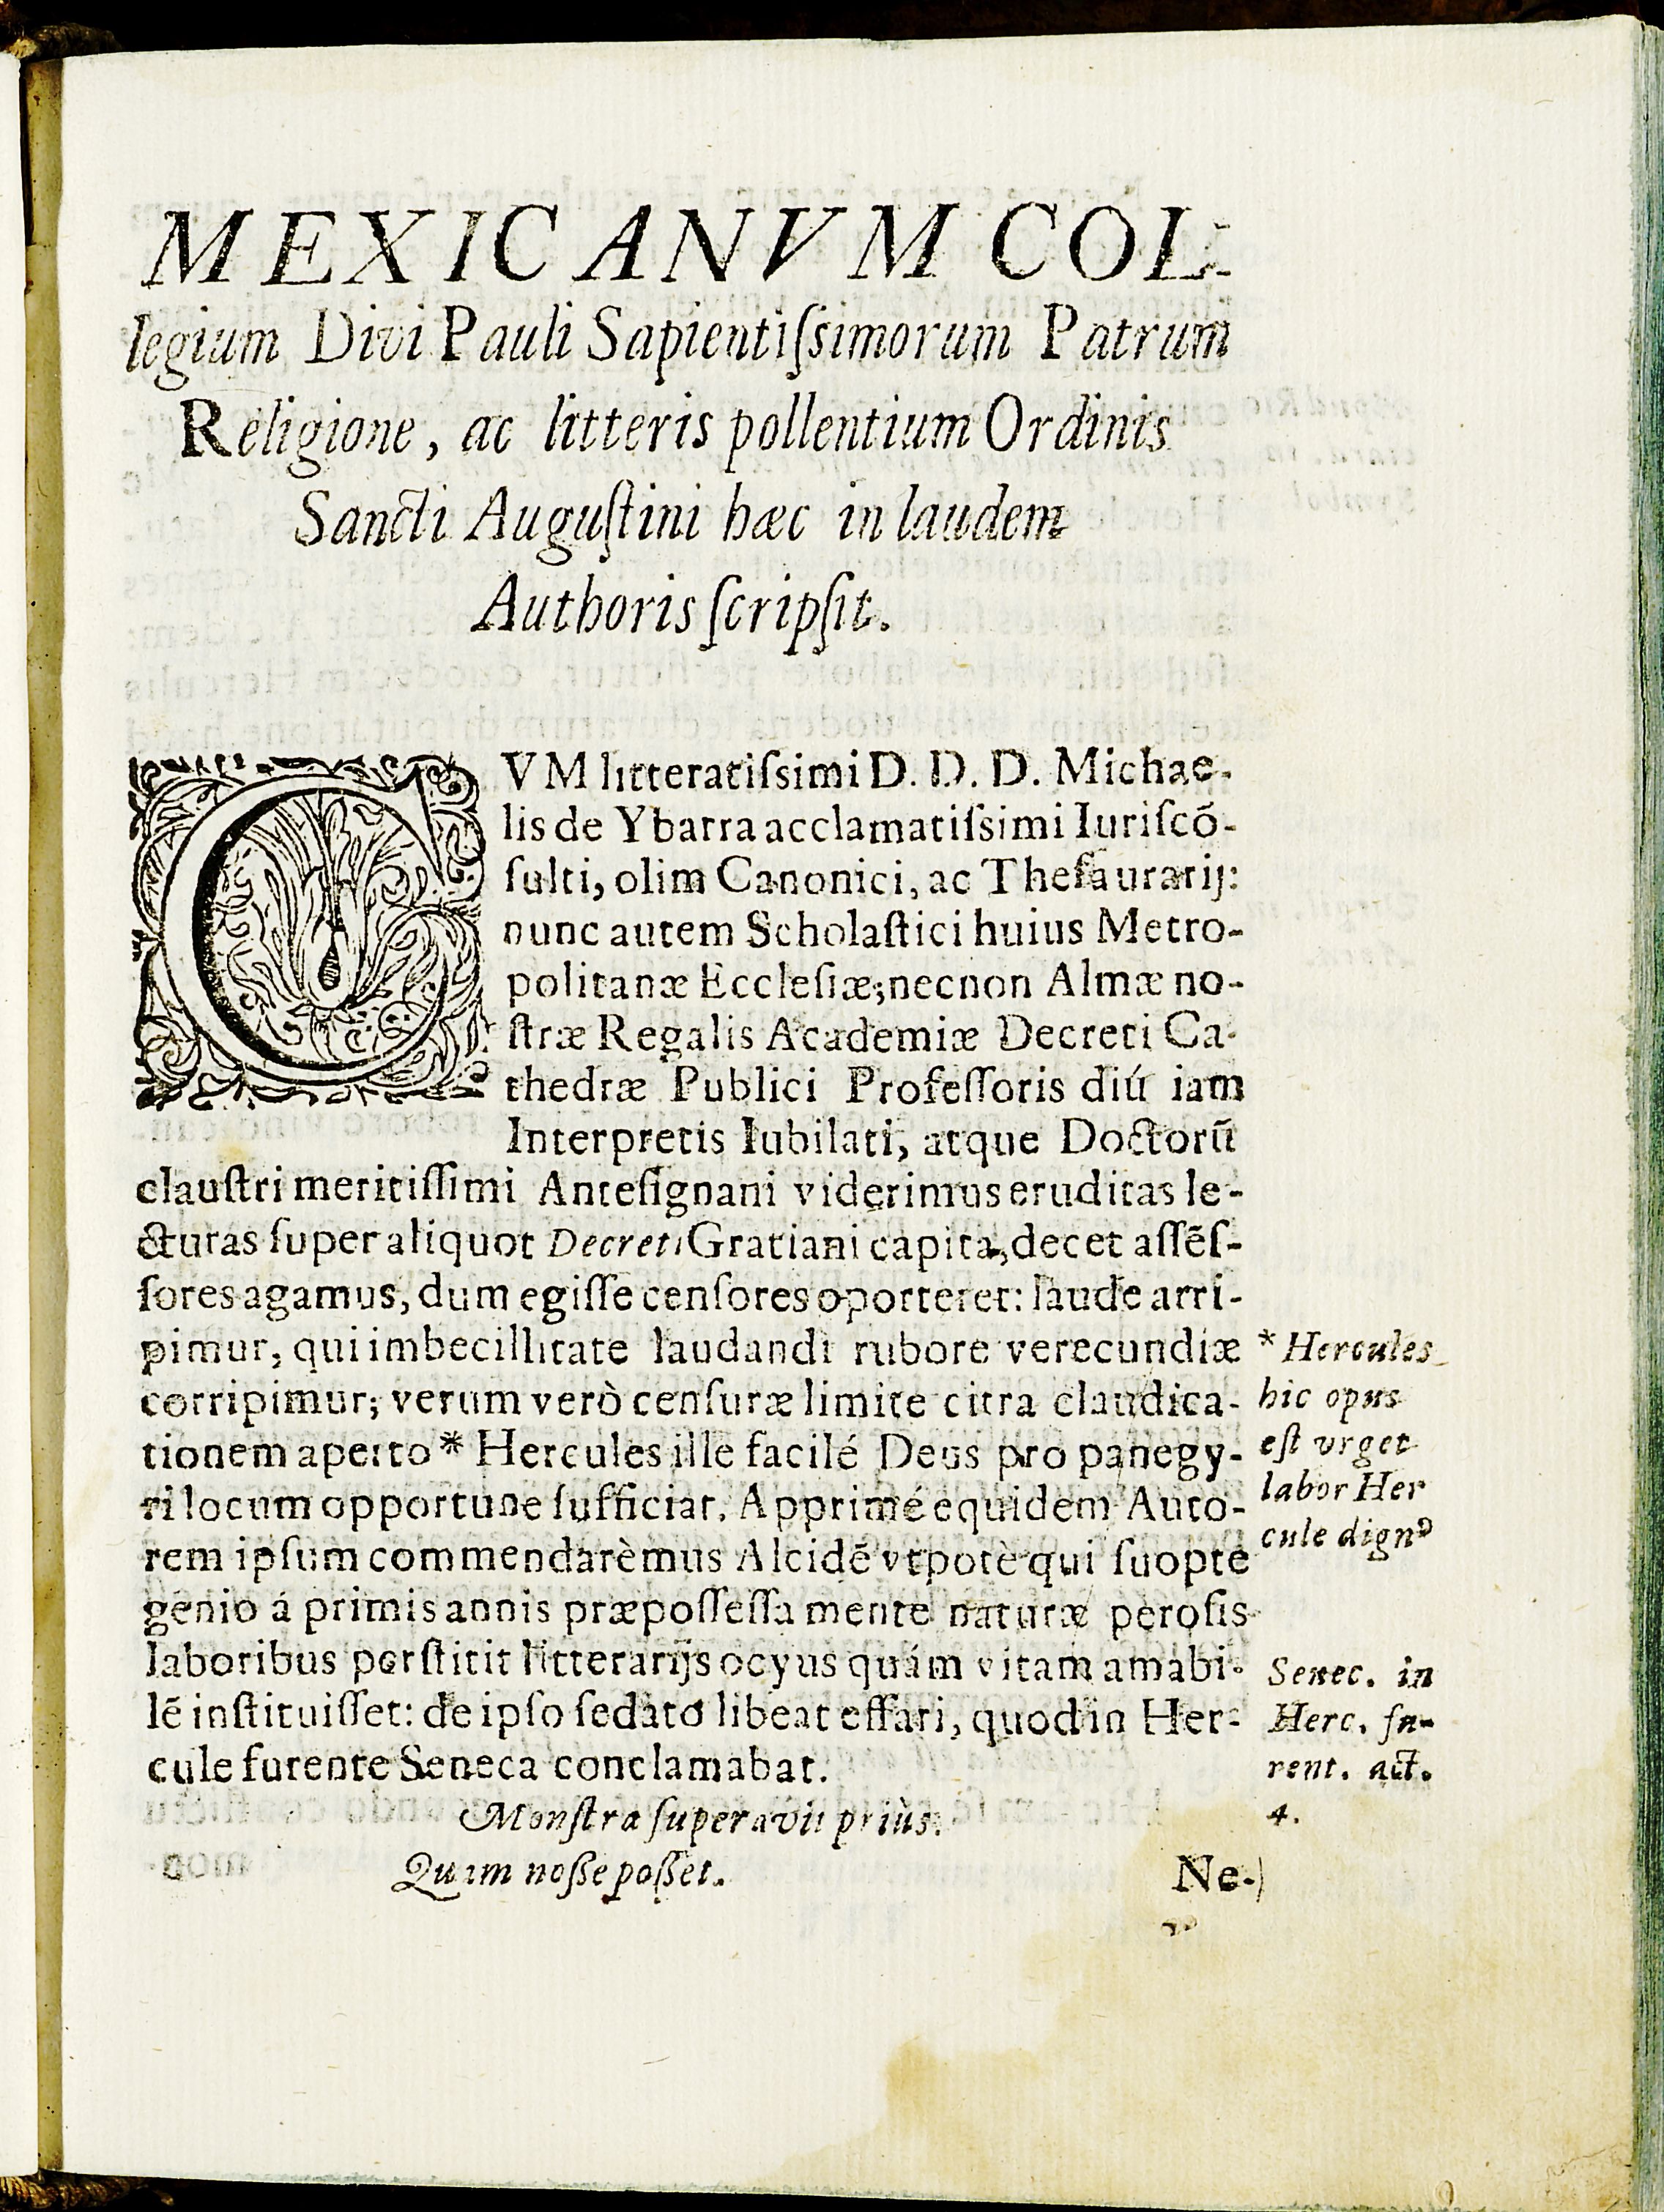 MEXICANVM COL-
legium Divi Pauli Sapientiſsimorum Patrum
Religione, ac litteris pollentium Ordinis
Sancti Auguſtini hæc in laudem
Authoris ſcripſit.
CVM litteratiſsimi D. D. D. Michae-
lis de Ybarra acclamatiſsimi Iuriſcõ-
ſulti, olim Canonici, ac Theſaurarij:
nunc autem Scholaſtici huius Metro-
politanæ Eccleſiæ; necnon Almæ no-
ſtræ Regalis Academiæ Decreti Ca-
thedræ Publici Profeſſoris diú iam
Interpretis Iubilati, atque Doctorũ
clauſtri meritiſſimi Anteſignani viderimus eruditas le-
cturas ſuper aliquot Decreti Gratiani capita, decet aſſẽſ-
ſores agamus, dum egiſſe cenſores oporteret: laude arri-
pimur, qui imbecillitate laudandi rubore verecundiæ
corripimur; verum verò cenſuræ limite citra claudica-
tionem aperto * Hercules ille facilé Deus pro panegy-
ri locum opportune ſufficiat. Apprimé equidem Auto-
rem ipſum commendarèmus Alcidẽ vtpotè qui ſuopte
genio á primis annis præpoſſeſſa mente naturæ peroſis
laboribus perſtitit litterarijs ocyus quám vitam amabi-
lẽ inſtituiſſet: de ipſo ſedato libeat effari, quod in Her-
cule furente Seneca conclamabat.
Monſtra ſuperavit priùs.
Quam noſſe poſſet.
Ne-
* Hercules
hic opus
eſt vrget
labor Her
cule dignꝰ
Senec. in
Herc. fu-
rent. act.
4.